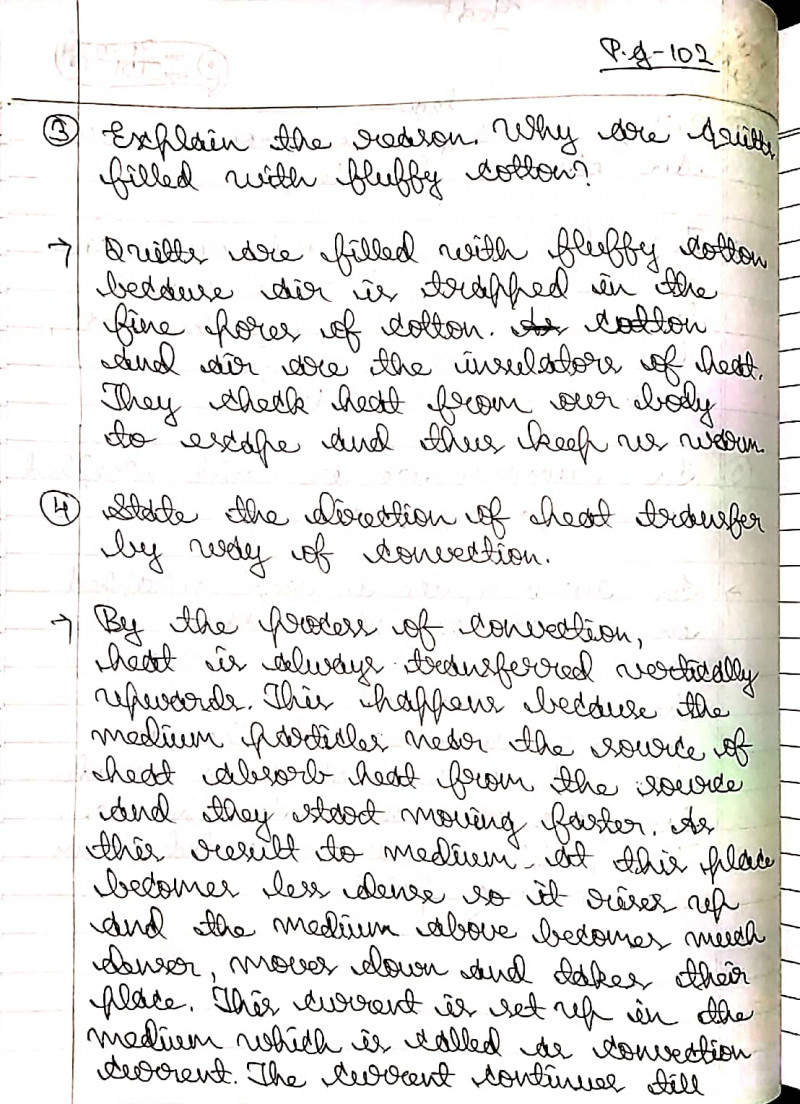 P.g-102
③ Explain the reason. Why are Quilts
filled with fluffy cotton?
→ Quilts are filled with fluffy cotton
because air is trapped in the
fine pores of cotton. As cotton
and air are the insulators of heat.
They check heat from our body
to escape and thus keep us warm.
④ State the direction of heat transfer
by way of convection.
→ By the process of convection,
heat is always transferred vertically
upwards. This happens because the
medium particles near the source of
heat absorb heat from the source
and they start moving faster. As
this result to medium at this place
becomes less dense so it rises up
and the medium above becomes much
denser, moves down and takes their
place. This current is set up in the
medium which is called as convection
current. The current continues till